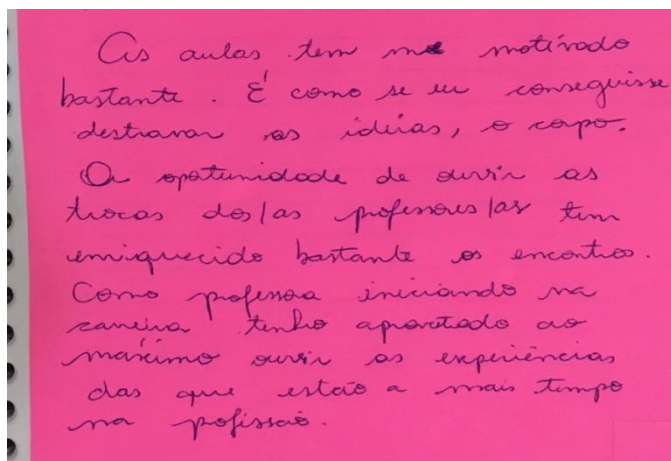 As aulas tem me motivado
bastante. É como se eu conseguisse
destravar as idéias, o corpo.
A opotunidade de ouvir as
trocas dos/as professores/as tem
enriquecido bastante os encontros.
Como professora iniciando na
carreira tenho aproveitado ao
máximo ouvir as experiências
das que estão a mais tempo
na pofissão.